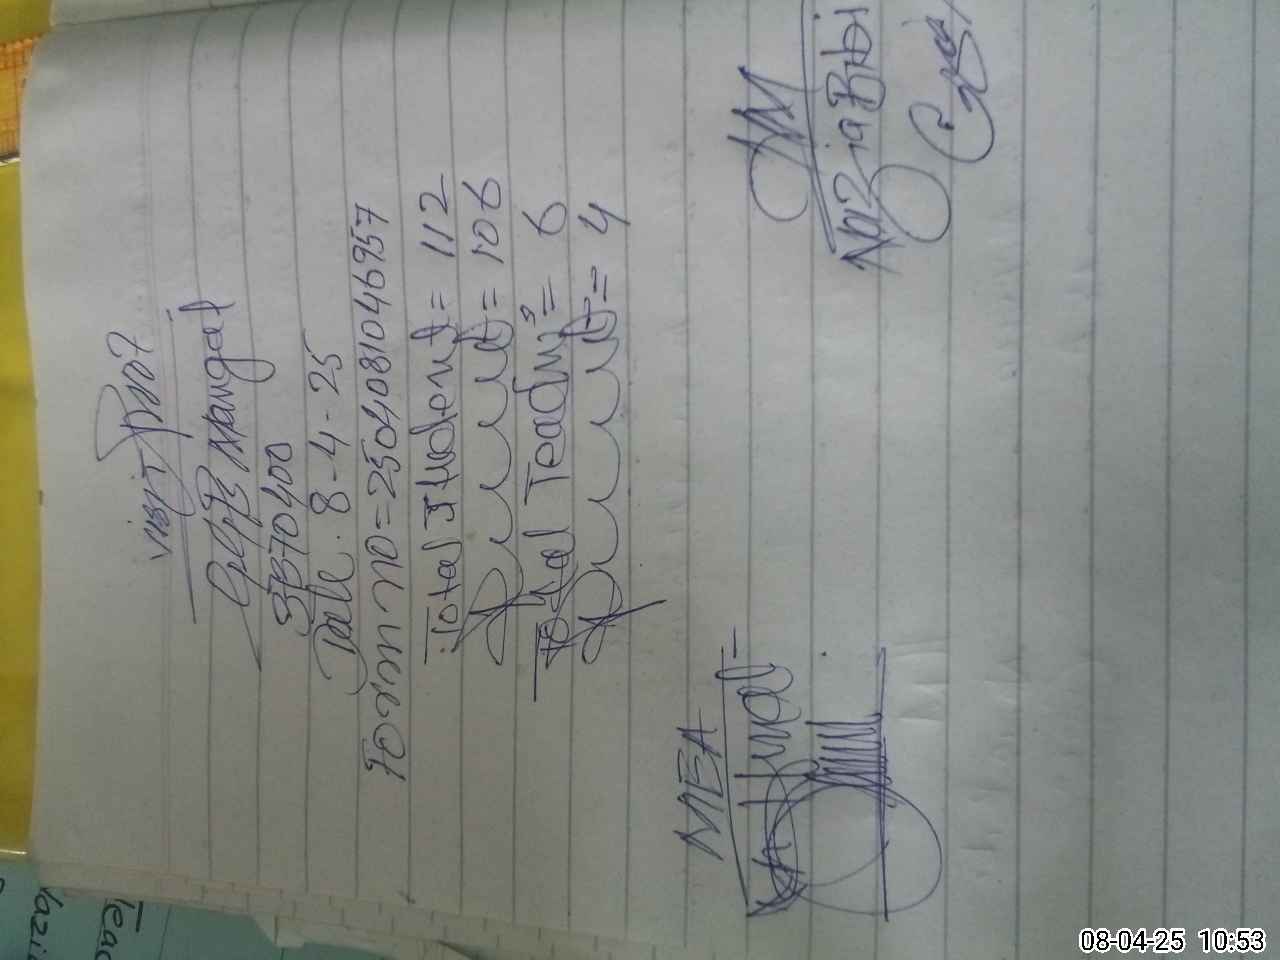 visit Proof
GGPS Mangal
3570400
Date. 8-4-25
Form no=2504081046957
Total Student= 112
P = 106
Total Teacher's= 6
P = 4
MEA
HM
Nazia Bibi
Teac
Vazi
08-04-25 10:53